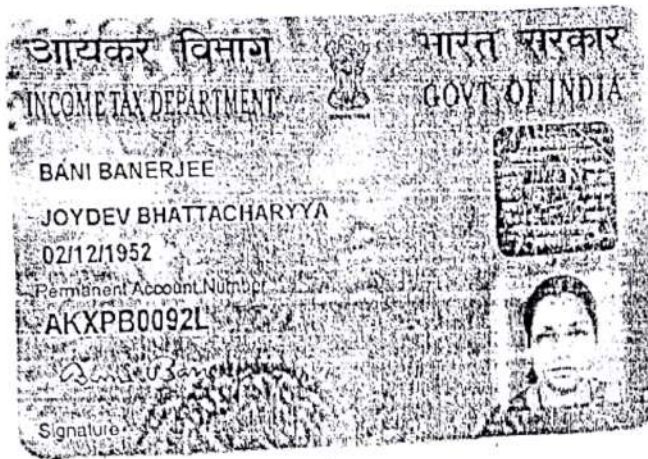 आयकर विभाग
भारत सरकार
INCOME TAX DEPARTMENT
GOVT. OF INDIA
BANI BANERJEE
JOYDEV BHATTACHARYYA
02/12/1952
Permanent Account Number
AKXPB0092L
Signature